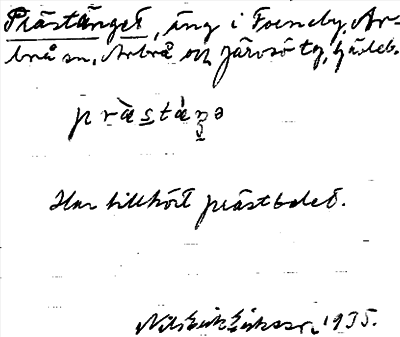 Prästänget, äng i Forneby, Ar-
brå sn, Arbrå och Järvsö tg, Gävleb.
prästäŋə
Har tillhört prästbolet.
Nils Erik Eriksson, 1935.